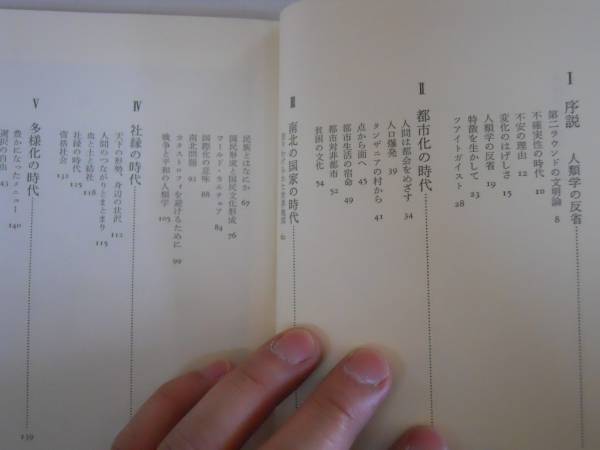 I 序説 人類学の反省
第二ラウンドの文明論 8
不確実性の時代 10
不安の理由 12
変化のはげしさ 15
人類学の反省 19
特徴を生かして 23
ツァイトガイスト 28
II 都市化の時代
人間は都会をめざす 34
人口爆発 39
タンザニアの村から 41
点から面へ 45
都市生活の宿命 49
都市対非都市 52
貧困の文化 54
III 南北の国家の時代
民族とはなにか 67
国民形成と国民文化形成 76
ワールド・カルチュア 84
国際化の意味 88
南北問題 93
カタストロフィを避けるために 99
戦争と平和の人類学 105
IV 社縁の時代
天下の形勢、身辺の状況 112
人間のつながりとまとまり 115
血と土と結社 118
社縁の時代 125
管括社会 132
V 多様化の時代
豊かになったメニュー 140
選択の自由 143
139